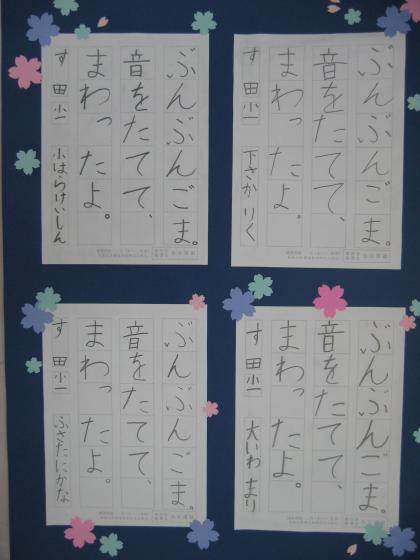 ぶんぶんごま。
音をたてて、
まわったよ。
す田小一 小はらけいしん
ぶんぶんごま。
音をたてて、
まわったよ。
す田小一 下さかりく
ぶんぶんごま。
音をたてて、
まわったよ。
す田小一 ふさたにかな
ぶんぶんごま。
音をたてて、
まわったよ。
す田小一 大いわまり